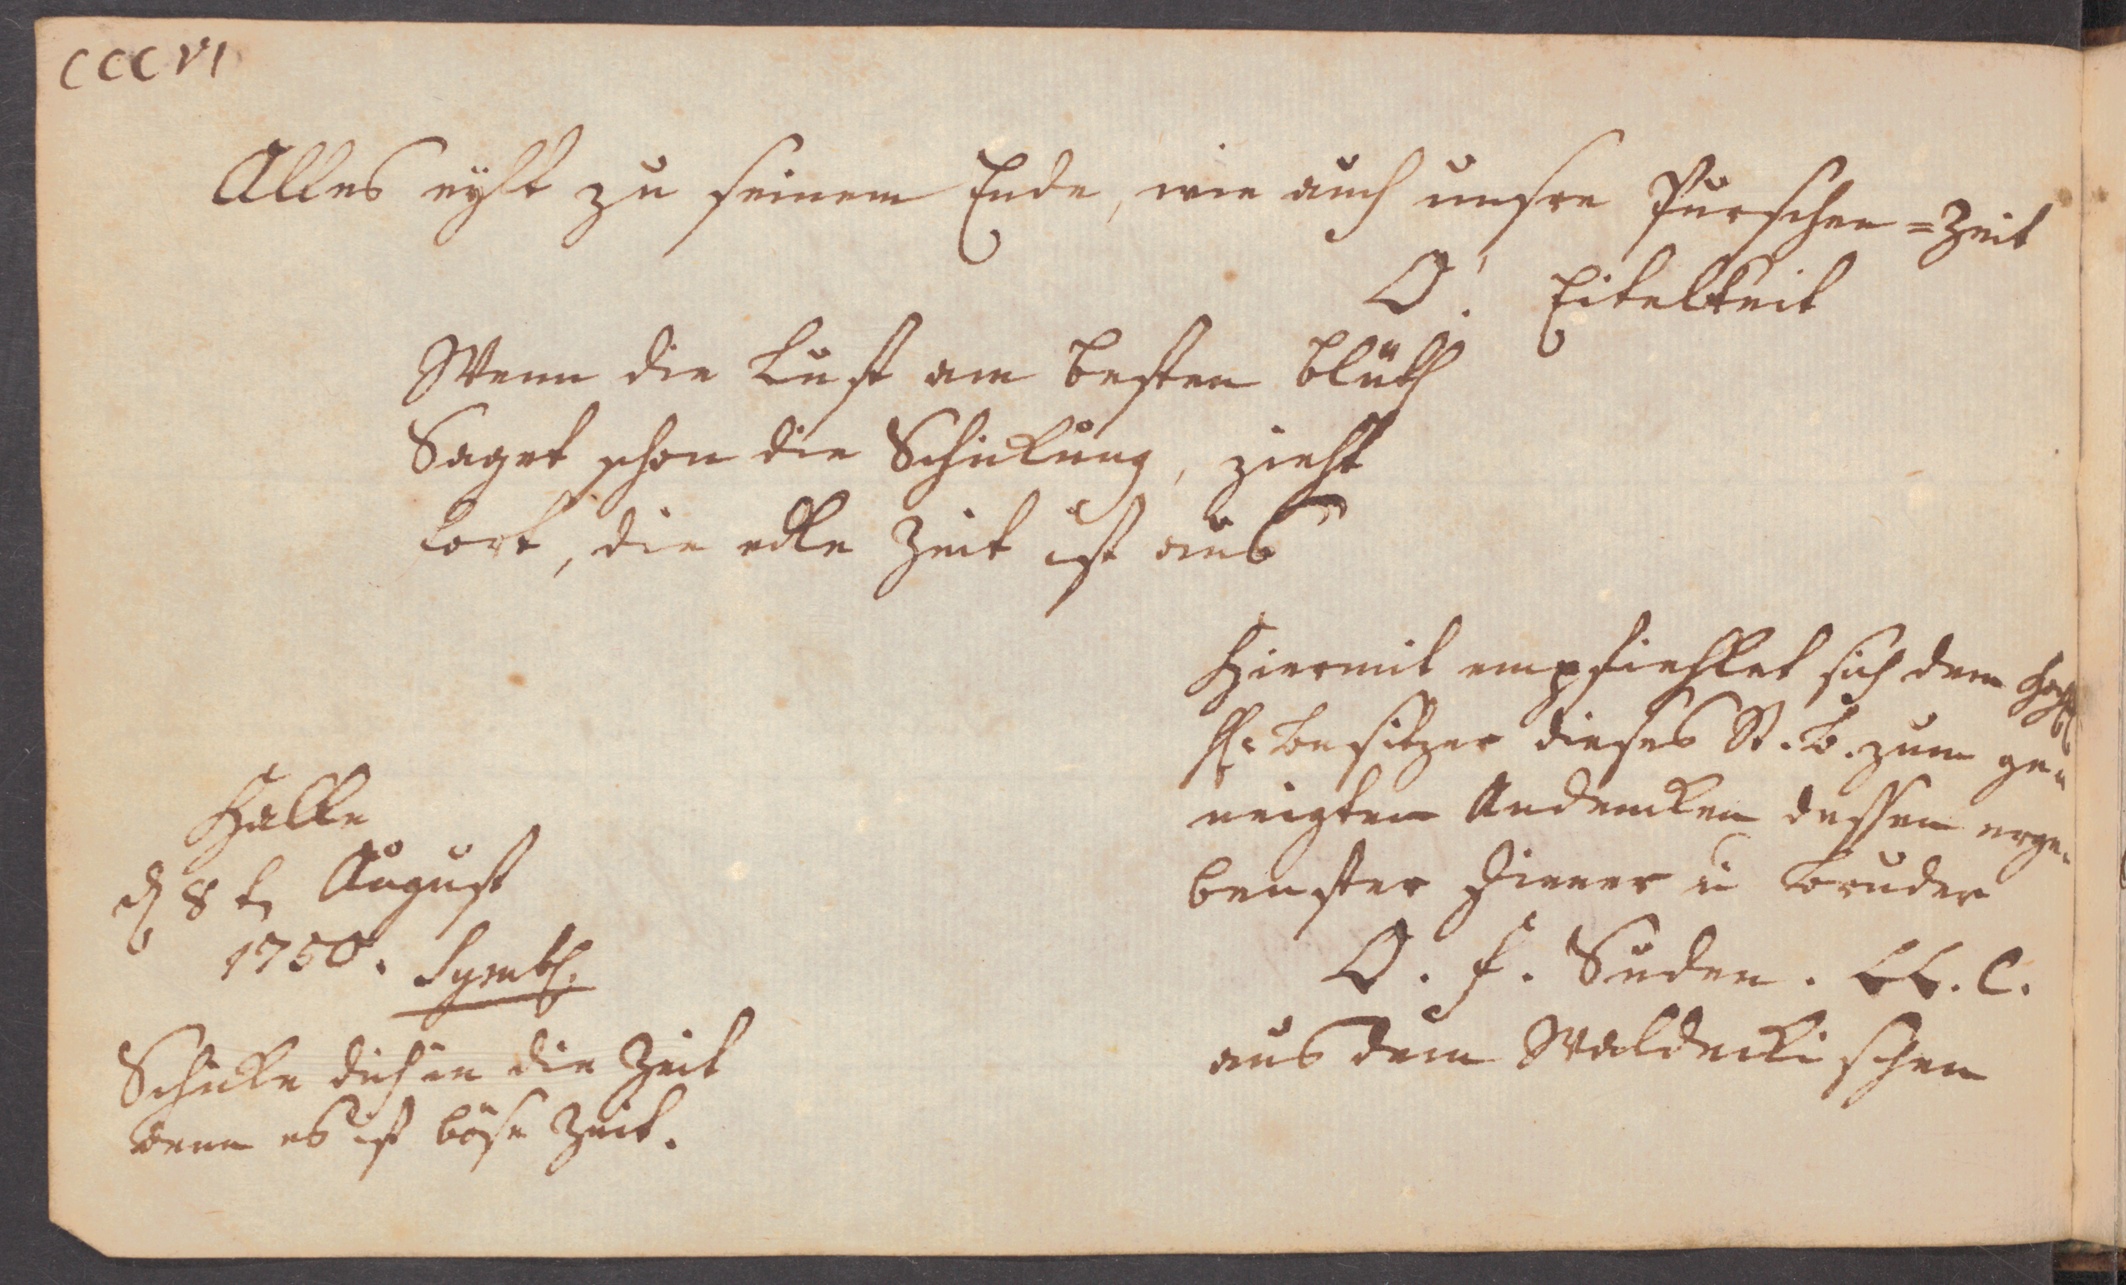 CCCVI
Alles eylt zu seinem Ende, wie auch unsre Purschen=Zeit
O! Eitelkeit
Wenn die Lust am besten blüth
Saget schon die Schickung, zieht
fort, die edle Zeit ist aus
Hiermit empfiehlet sich dem
H. Besitzer dieses St. B. zum ge-
neigten Andencken dessen erge-
benster Diener u Bruder
O. F. Suden. LL. C.
aus dem Waldeckischen
Halle
d 8t August
1750. Symb.
Schicke dich in die Zeit
denn es ist böse Zeit.